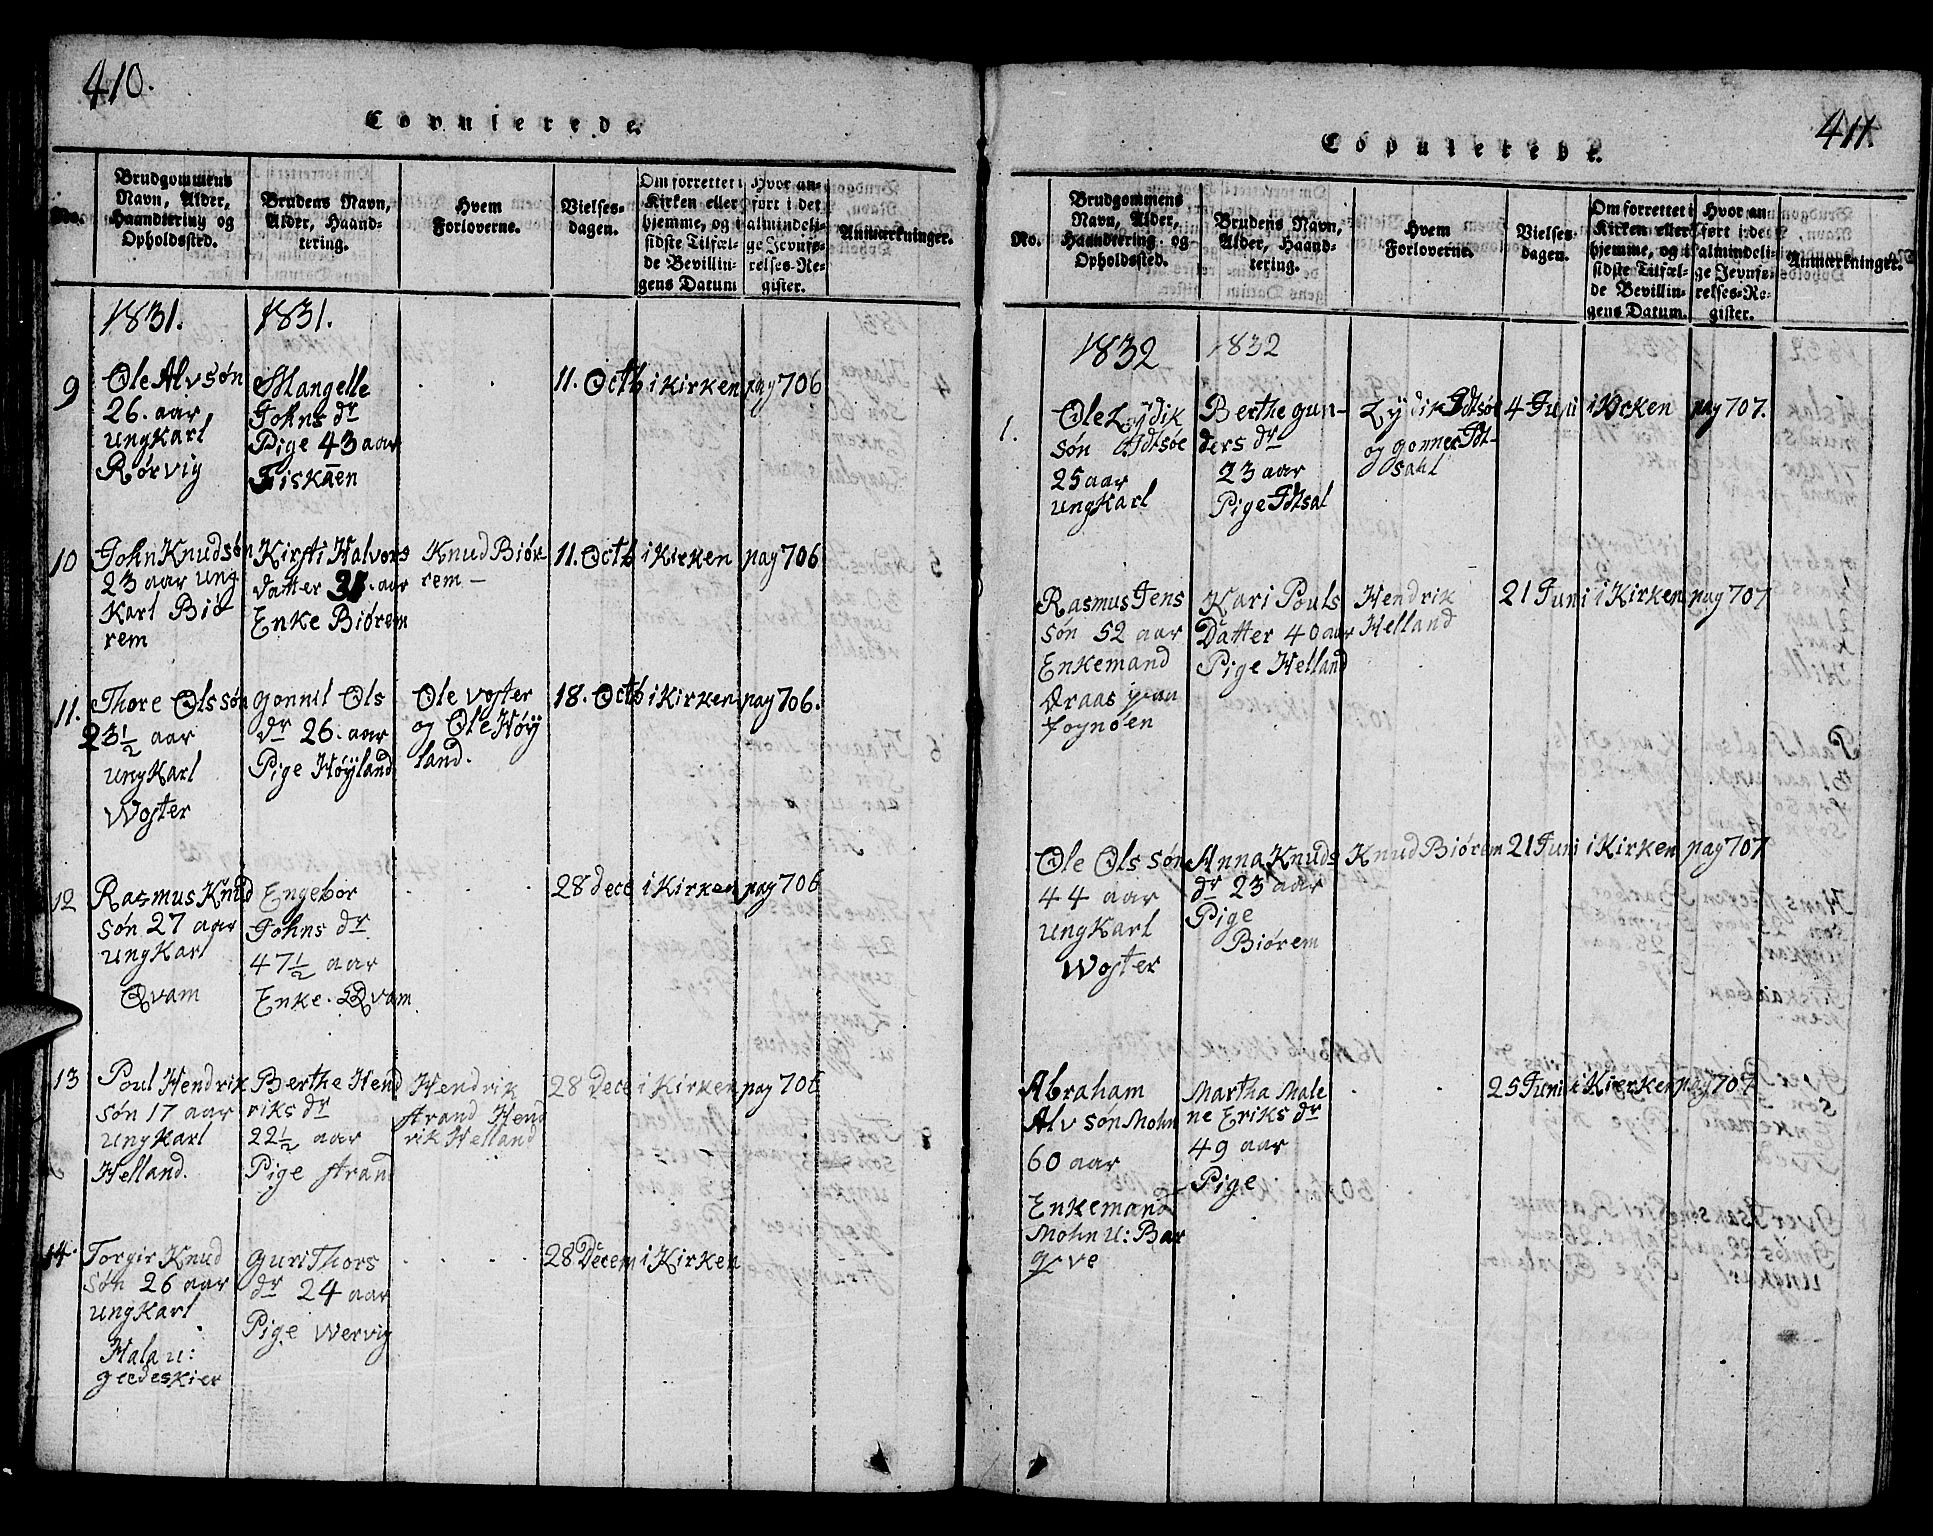 410.
Copulerede.
No.
Brudgommens
Navn, Alder,
Haandtering og
Opholdssted.
Brudens Navn,
Alder, Haand-
tering.
Hvem
Forloverne.
Vielses-
dagen.
Om forrettet i
Kirken eller
hjemme, og i
sidste Tilfæl-
de Bevillin-
gens Datum
Hvor an-
ført i det
almindeli-
ge Jevnfø-
relses-Re-
gister.
Anmærkninger.
1831.
1831.
9
Ole Alvsøn
26. aar
ungkarl
Rørvig
Mangelle
Johns dr
Pige 43 aar
Fiskaaen
11. Octb
i Kirken
pag 706
10
John Knudsøn
23 aar ung
Karl Biø
rem
Kirsti Halvors
datter 31. aar
Enke Biørem
Knud Biør
rem
11. Octb
i Kirken
pag 706
11.
Thore Olssøn
23½ aar
ungKarl
Woster
Gonnil Ols
dr 26. aar
Pige Høyland
Ole Voster
og Ole Høy
land.
18. Octb
i Kirken
pag 706.
12
Rasmus Knud
søn 27 aar
ungKarl
Qvam
Engebor
Johns dr
47½ aar
Enke. Qvam
28 Dece
i Kirken
pag 706
13
Poul Hendrik
søn 17 aar
ungKarl
Helland.
Berthe Hend
riks dr
22½ aar
Pige Strand
Hendrik
Strand Hend
rik Helland
28 Dece
i Kirken
pag 706
14.
Torgir Knud
søn 26 aar
ungKarl
Hala u:
Geedeskier
Guri Thors
dr 24 aar
Pige Wervig
28 Decem
i Kirken
411.
Copulerede.
No.
Brudgommens
Navn, Alder,
Haandtering og
Opholdssted.
Brudens Navn,
Alder, Haand-
tering.
Hvem
Forloverne.
Vielses-
dagen.
Om forrettet i
Kirken eller
hjemme, og i
sidste Tilfæl-
de Bevillin-
gens Datum.
Hvor an-
ført i det
almindeli-
ge Jevnfø-
relses-Re-
gister.
Anmærkninger.
1832
1832
1.
Ole Lydik
søn Idtsøe
25 aar
ungKarl
Berthe Gun-
ders dr
23 aar
Pige Idtsal
Lydik Idtsøe
og Gonner Idt-
sahl
4 Juni
i Kirken
pag 707.
Rasmus Jens
søn 52 aar
Enkemand
Araas paa
Fognøen
Kari Pouls
Datter 40 aar
Pige Helland
Hendrik
Helland
21 Juni
i Kirken
pag 707
Ole Olssøn
44 aar
ungKarl
Woster
Anna Knuds
dr 23 aar
Pige
Biørem
Knud Biørem
21 Juni
i Kirken
pag 707
Abraham
Alvsøn Mohn
60 aar
Enkemand
Mohn u: Bar
Martha Male
ne Eriks dr
49 aar
Pige
25 Juni
i Kierken
pag 707